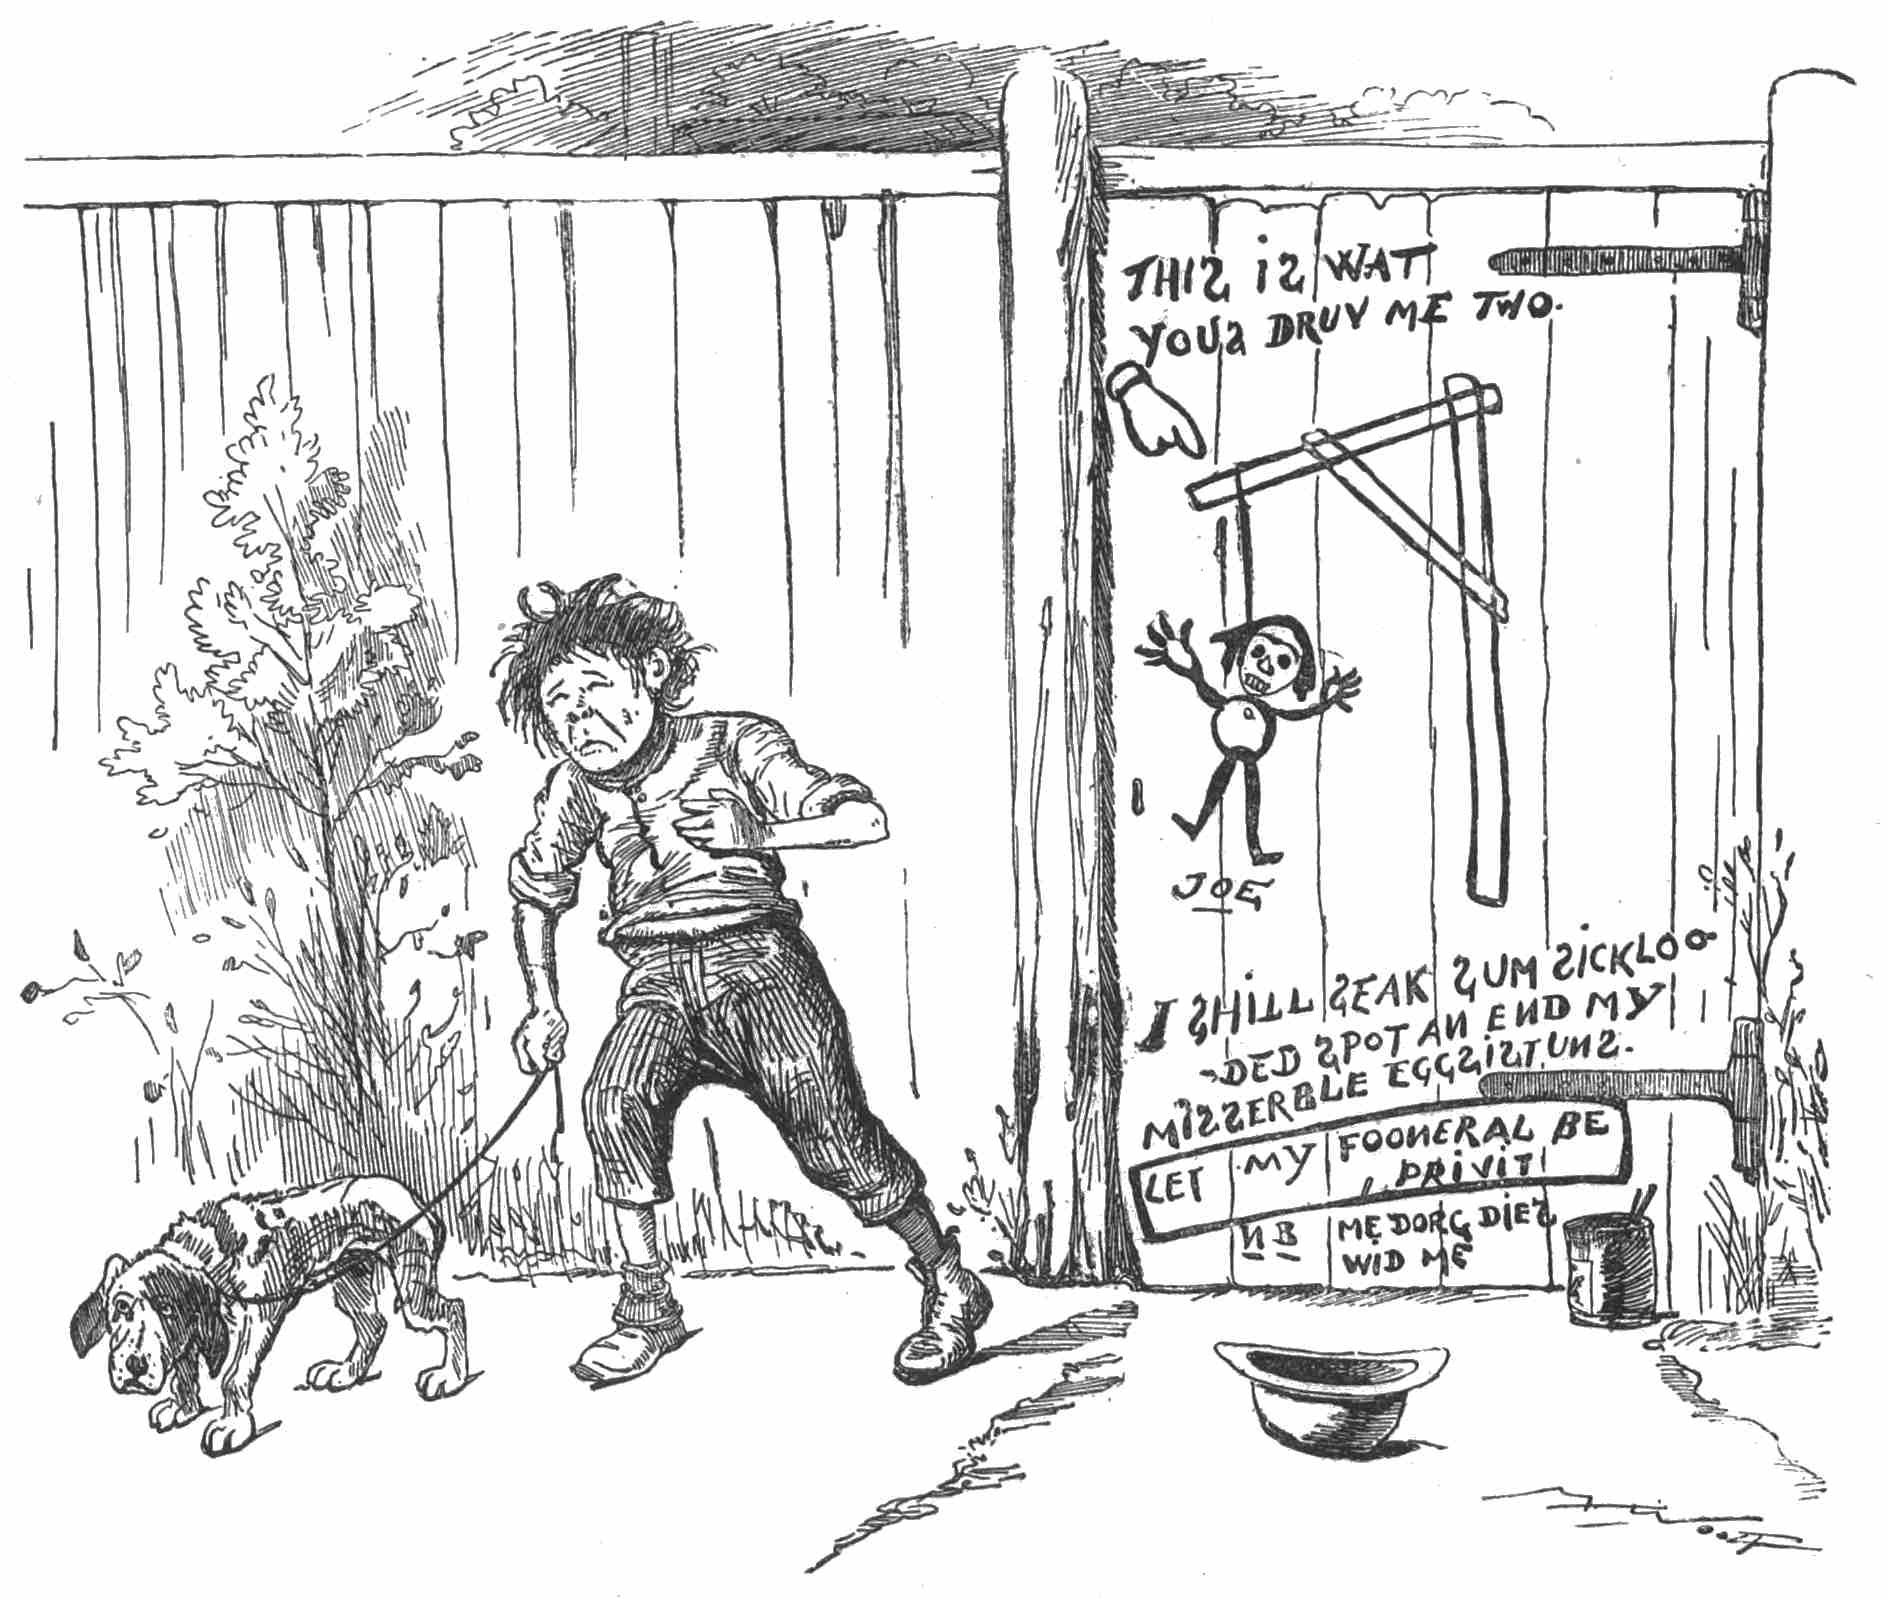 THIS IS WAT
YOUS DRUV ME TWO.
JOE
I SHILL SEAK SUM SICKLOO
-DED SPOT AN END MY
MISSERBLE EGGSISTUNS.
LET MY FOONERAL BE
PRIVIT
NB ME DORG DIES
WID ME